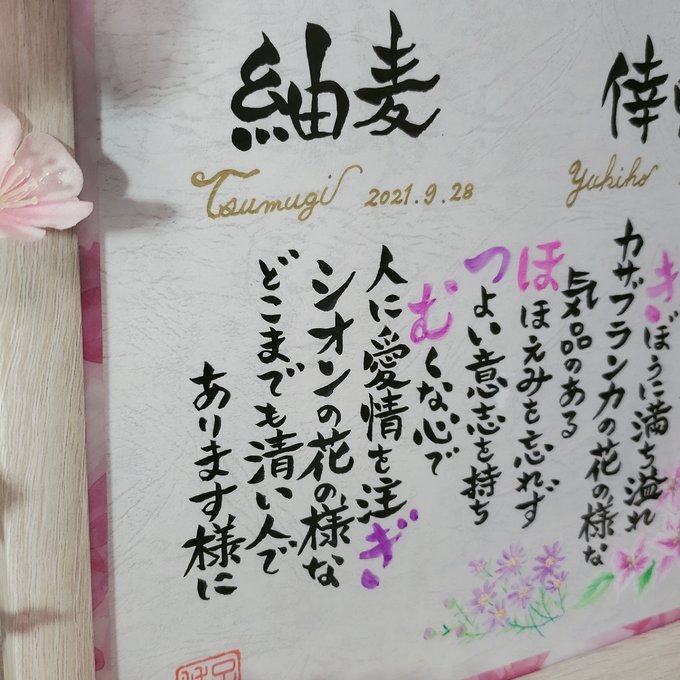 紬麦
倖
Tsumugi 2021.9.28
Yukiho
きぼうに満ち溢れ
カザブランカの花の様な
気品のある
ほほえみを忘れず
つよい意志を持ち
むくな心で
人に愛情を注ぎ
シオンの花の様な
どこまでも清い人で
あります様に